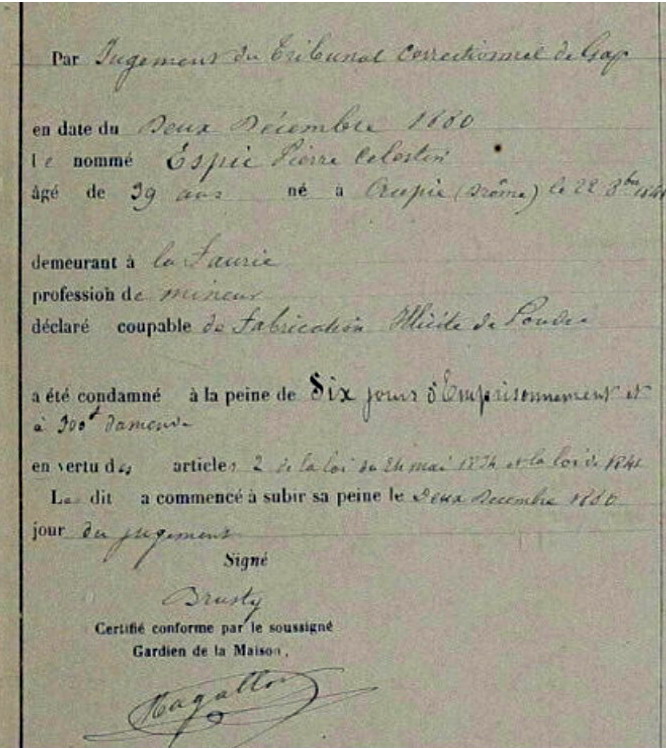 Par Jugement du Tribunal Correctionnel de Gap
en date du Deux Décembre 1880
le nommé Espié Pierre Celestin
âgé de 39 ans né à Creupie (Drôme) le 22 8bre 1841
demeurant à la Faurie
profession de mineur
déclaré coupable de Fabrication Illicite de Poudre
a été condamné à la peine de Six jours d'Emprisonnement et
à 300f d'amende
en vertu des articles 2 de la loi du 24 mai 1834 et la loi de
Le dit a commencé à subir sa peine le Deux Decembre 1880
jour du jugement
Signé
Brusty
Certifié conforme par le soussigné
Gardien de la Maison,
Magallon